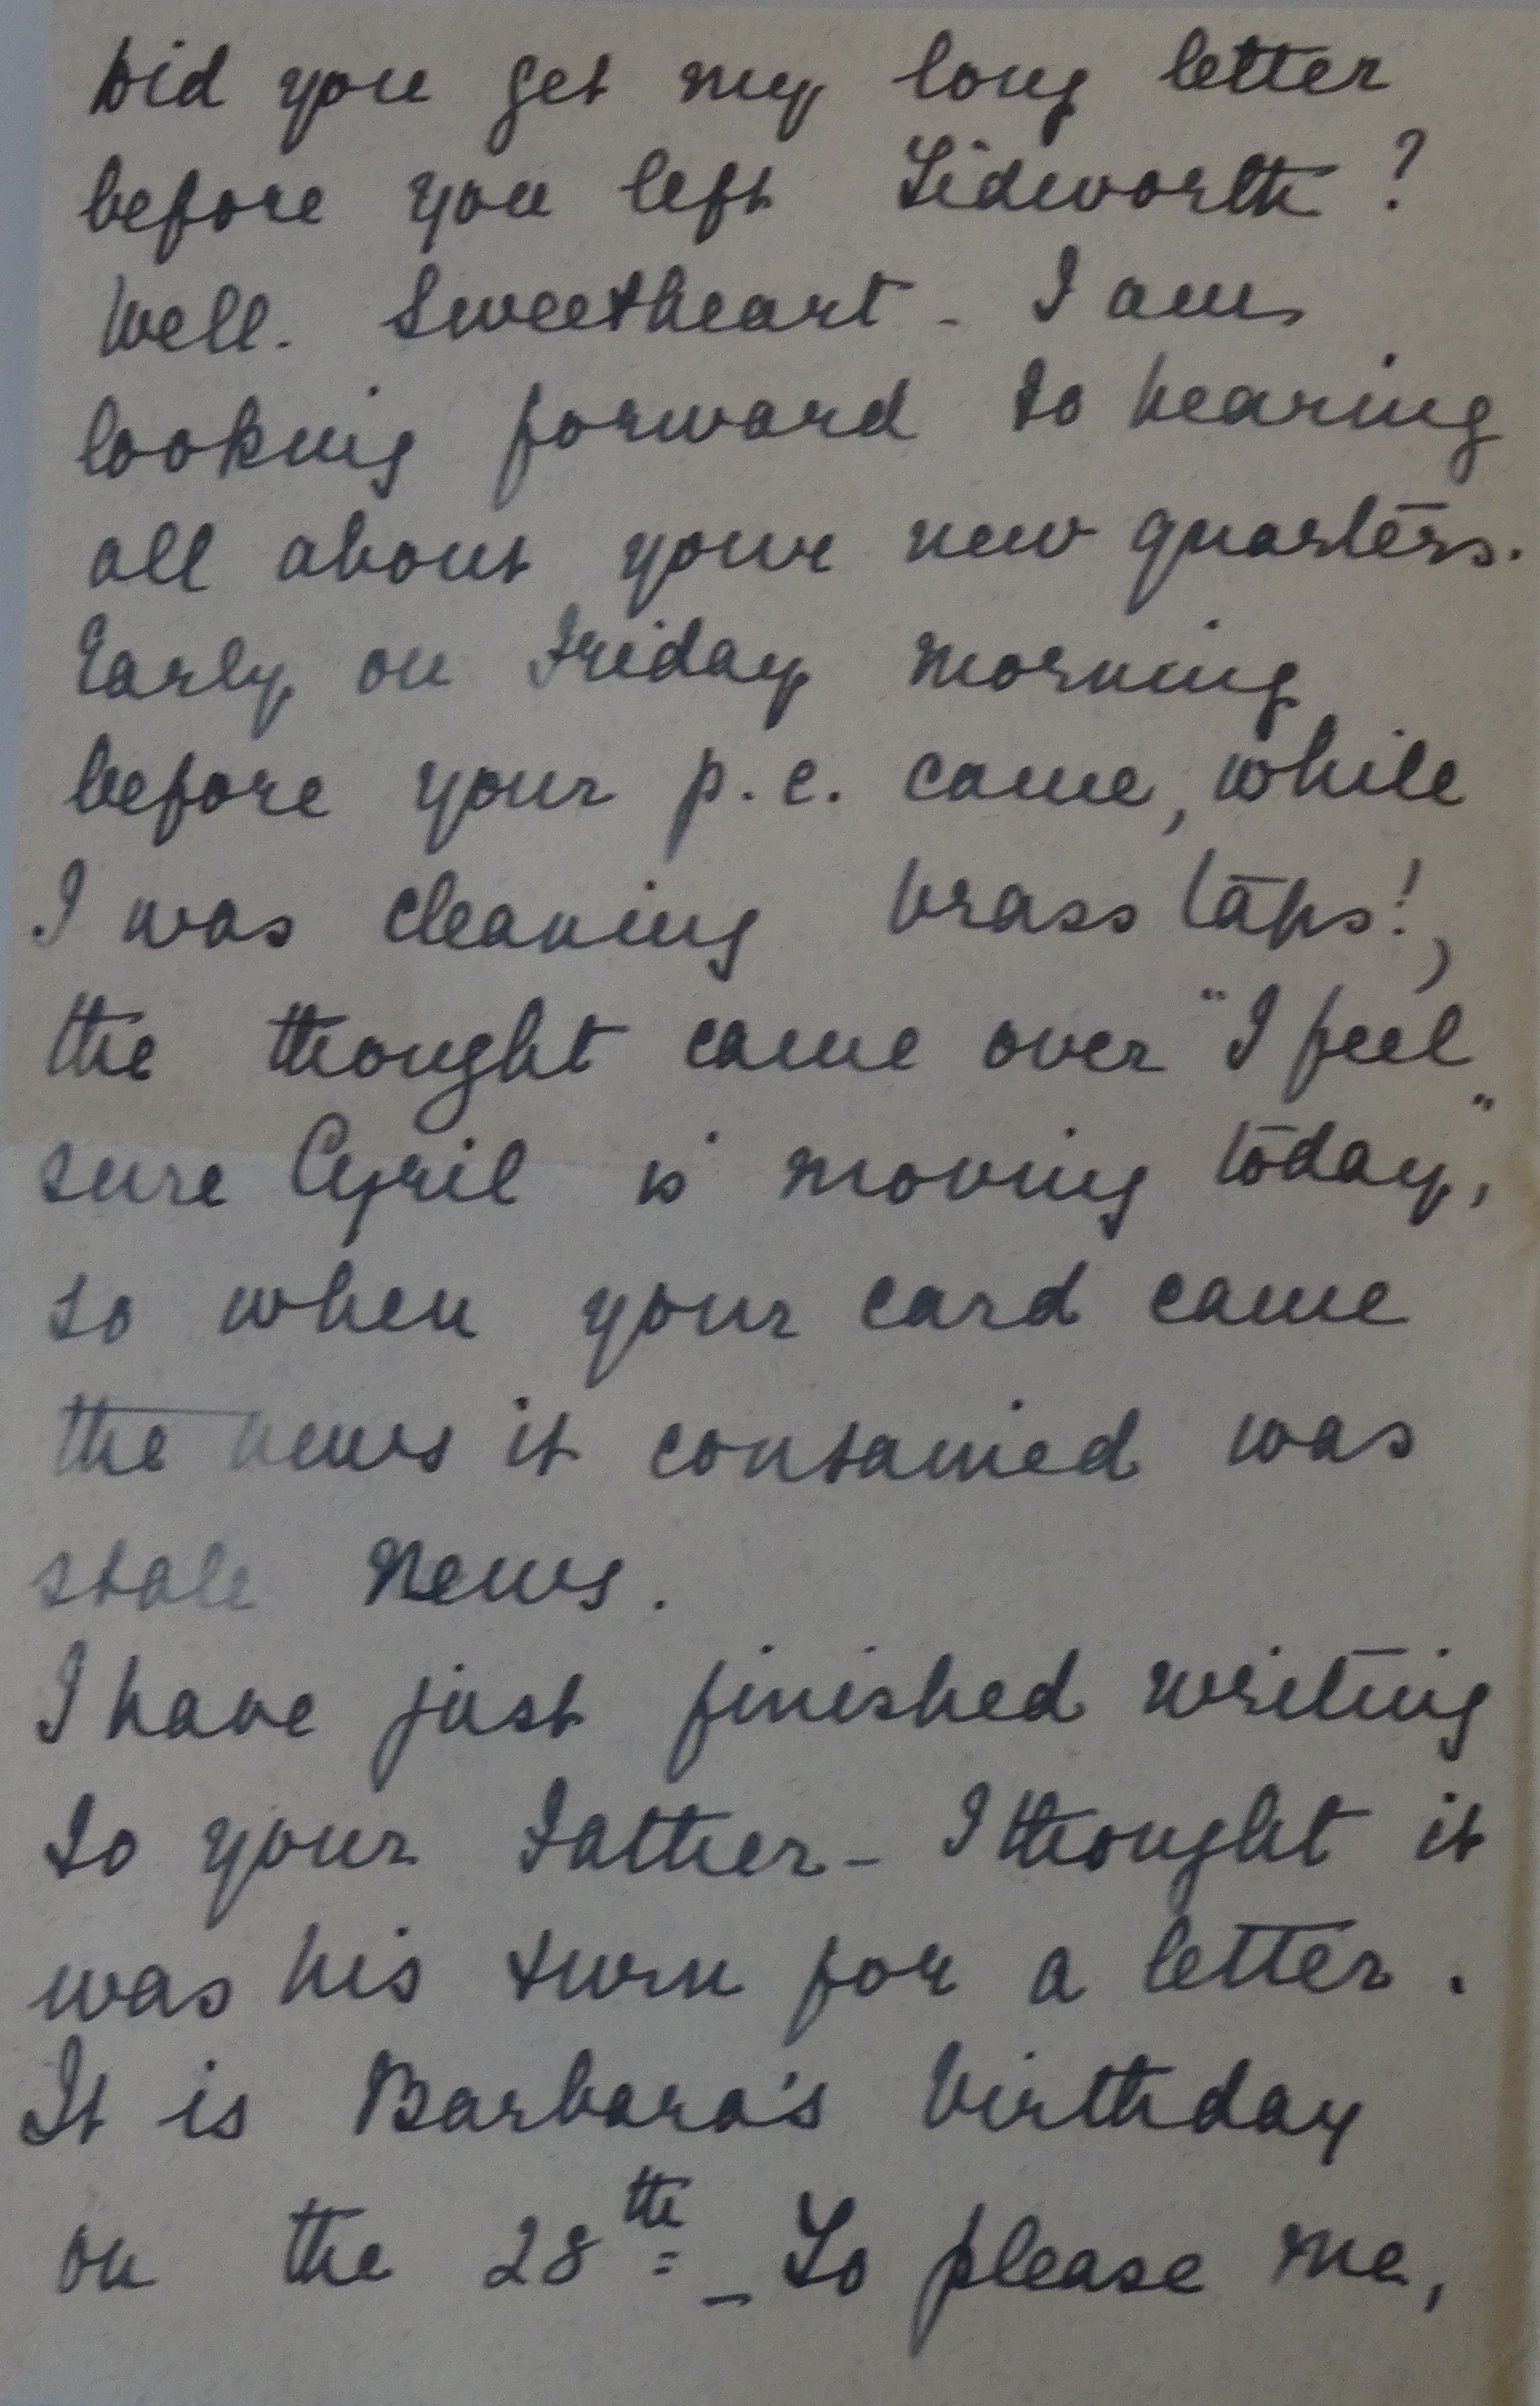 Did you get my long letter
before you left Tidworth?
Well. Sweetheart - I am
looking forward to hearing
all about your new quarters.
Early on Friday morning
before your p.c. came, while
I was cleaning brass taps!,
the thought came over "I feel
sure Cyril is moving today",
so when your card came
the news it contained was
stale news.
I have just finished writing
to your Father - I thought it
was his turn for a letter.
It is Barbara's birthday
on the 28th - To please me,